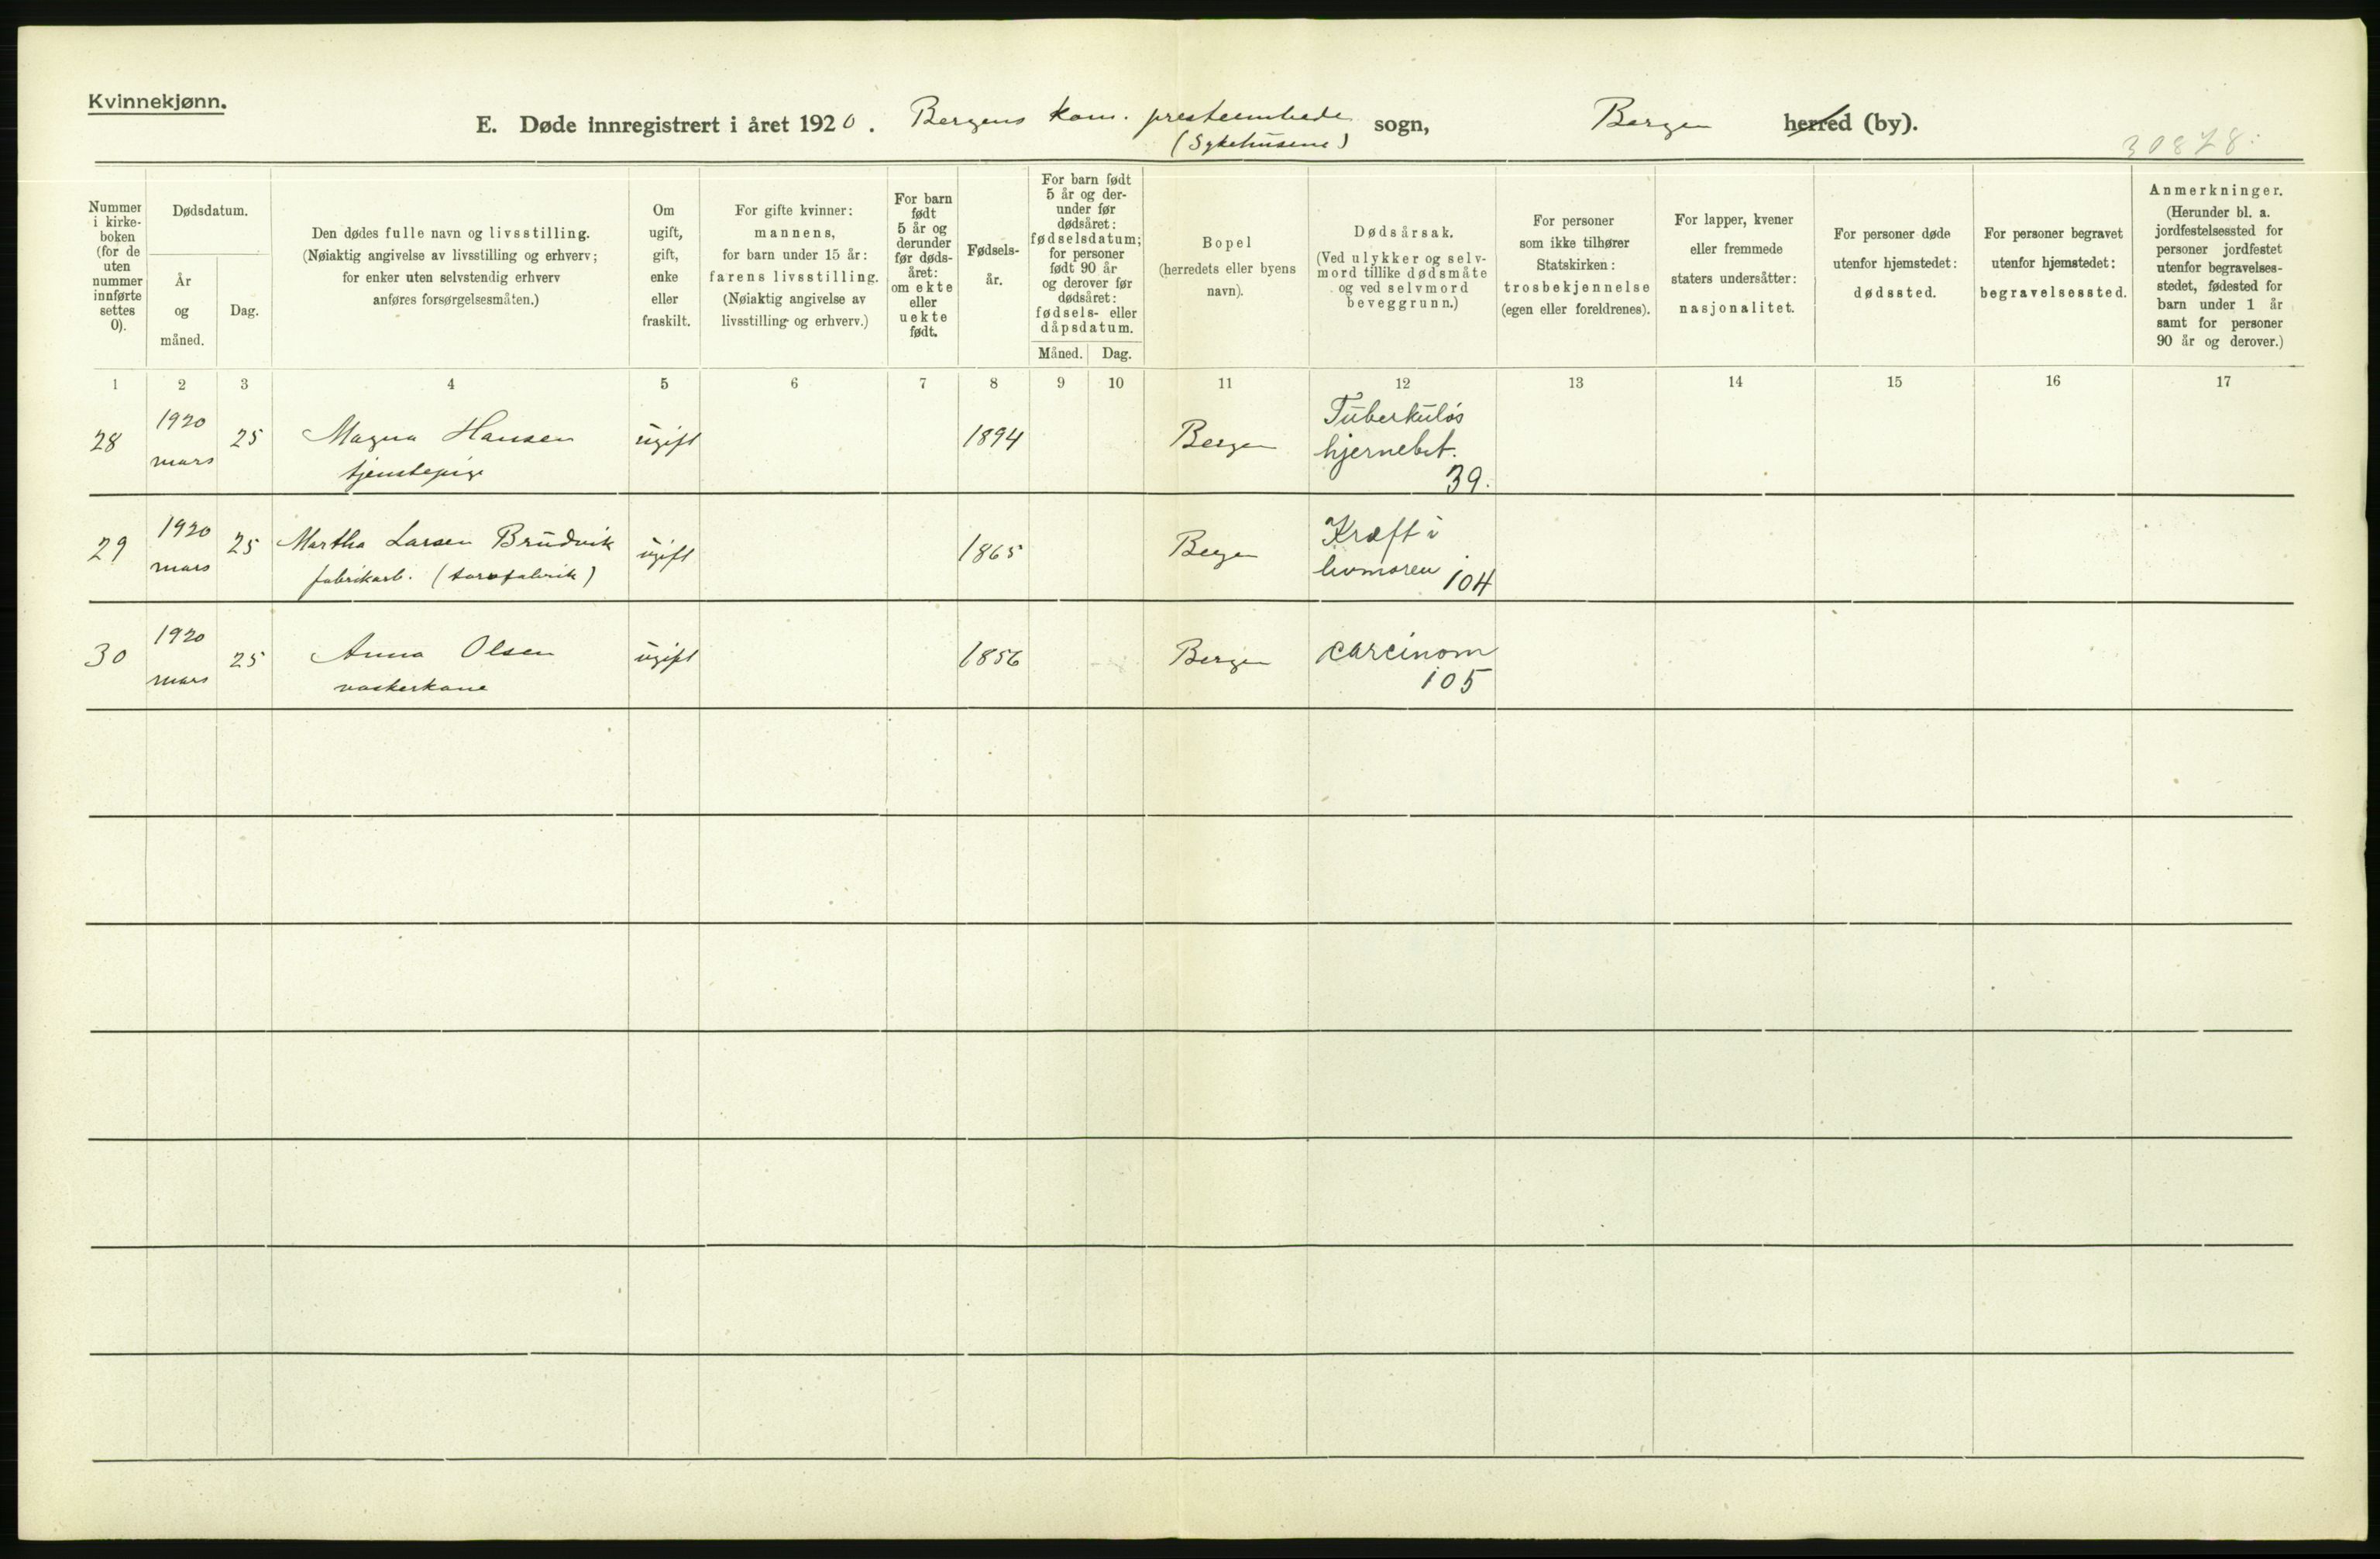 Kvinnekjønn.
E. Døde innregistrert i året 1920. Bergens kom. presteembede sogn, Bergen herred (by).
(Sykehusene)
30878.
Nummer i kirkeboken (for de uten nummer innførte settes 0).
Dødsdatum.
År og måned.
Dag.
Den dødes fulle navn og livsstilling.
(Nøiaktig angivelse av livsstilling og erhverv;
for enker uten selvstendig erhverv
anføres forsørgelsesmåten.)
Om ugift, gift, enke eller fraskilt.
For gifte kvinner:
mannens,
for barn under 15 år:
farens livsstilling.
(Nøiaktig angivelse av
livsstilling og erhverv.)
For barn født 5 år og derunder før dødsåret: om ekte eller uekte født.
Fødselsår.
For barn født 5 år og derunder før dødsåret: fødselsdatum; for personer født 90 år og derover før dødsåret: fødsels- eller dåpsdatum.
Måned. Dag.
Bopel
(herredets eller byens
navn).
Dødsårsak.
(Ved ulykker og selvmord tillike dødsmåte og ved selvmord beveggrunn.)
For personer
som ikke tilhører
Statskirken:
trosbekjennelse
(egen eller foreldrenes).
For lapper, kvener
eller fremmede
staters undersåtter:
nasjonalitet.
For personer døde
utenfor hjemstedet:
dødssted.
For personer begravet
utenfor hjemstedet:
begravelsessted.
Anmerkninger.
(Herunder bl. a.
jordfestelsessted for
personer jordfestet
utenfor begravelsesstedet, fødested for
barn under 1 år
samt for personer
90 år og derover.)
1 2 3 4 5 6 7 8 9 10 11 12 13 14 15 16 17
28 1920 mars 25 Magna Hansen ugift 1894 Bergen Tuberkuløs
tjenstepige hjernebet.
39.
29 1920 mars 25 Martha Larsen Brudvik ugift 1865 Bergen Kræft i
fabrikarb. livmoren 104
30 1920 mars 25 Anna Olsen ugift 1856 Bergen carcinom
vaskerkone 105